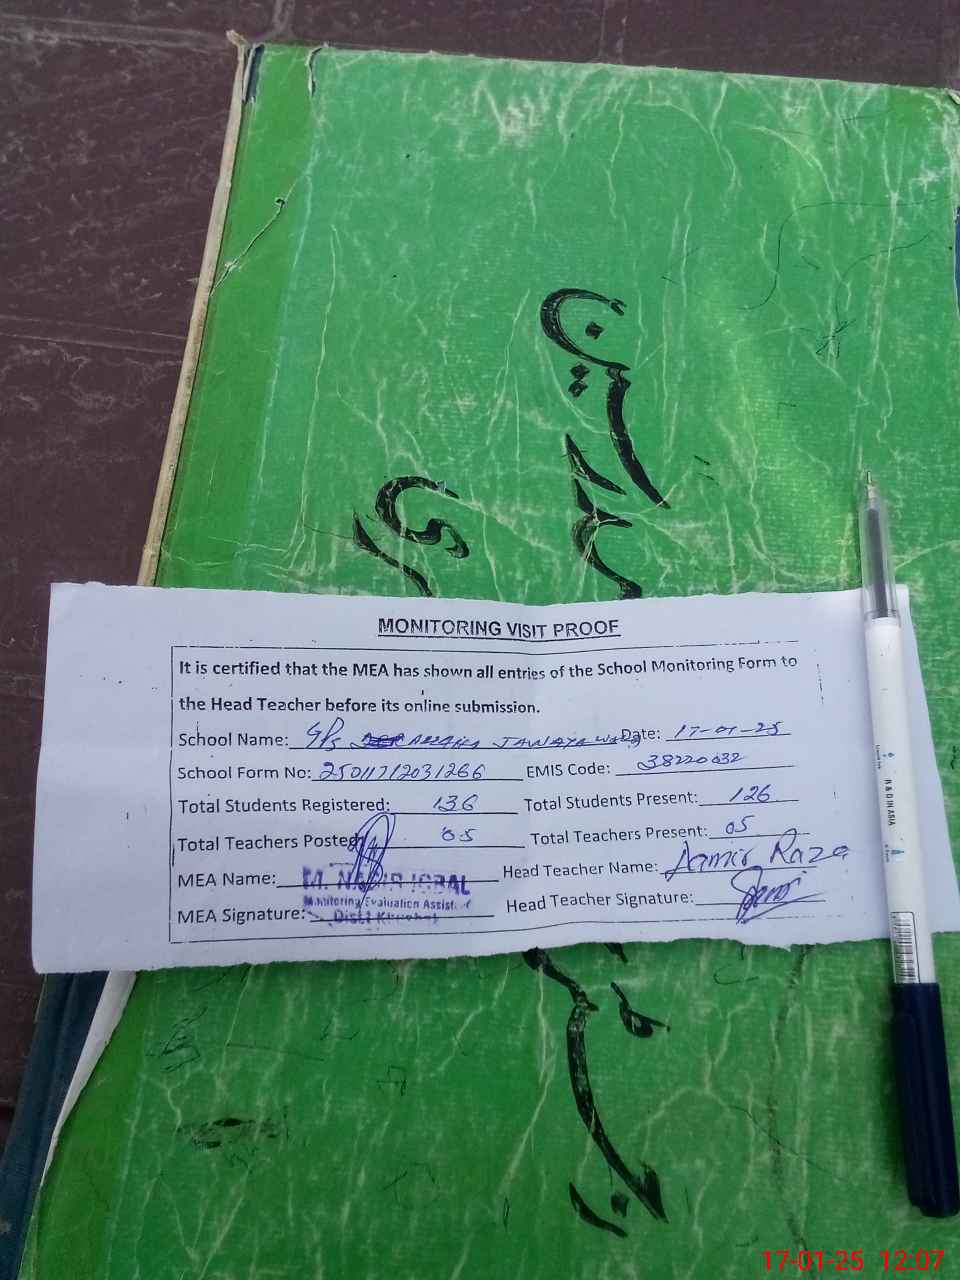 MONITORING VISIT PROOF
It is certified that the MEA has shown all entries of the School Monitoring Form to
the Head Teacher before its online submission.
School Name: GPS JAWAYA WALA Date: 17-01-25
School Form No: 25011712031266 EMIS Code: 38220032
Total Students Registered: 136 Total Students Present: 126
Total Teachers Posted: 05 Total Teachers Present: 05
MEA Name: M. NADIR IQBAL Head Teacher Name: Aamir Raza
Monitoring/Evaluation Assistant
MEA Signature: Distt Khushab Head Teacher Signature:
R & D IN ASIA
17-01-25 12:07